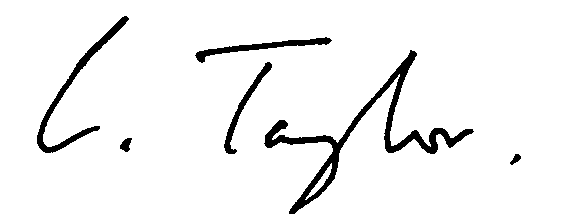 C. Taylor.